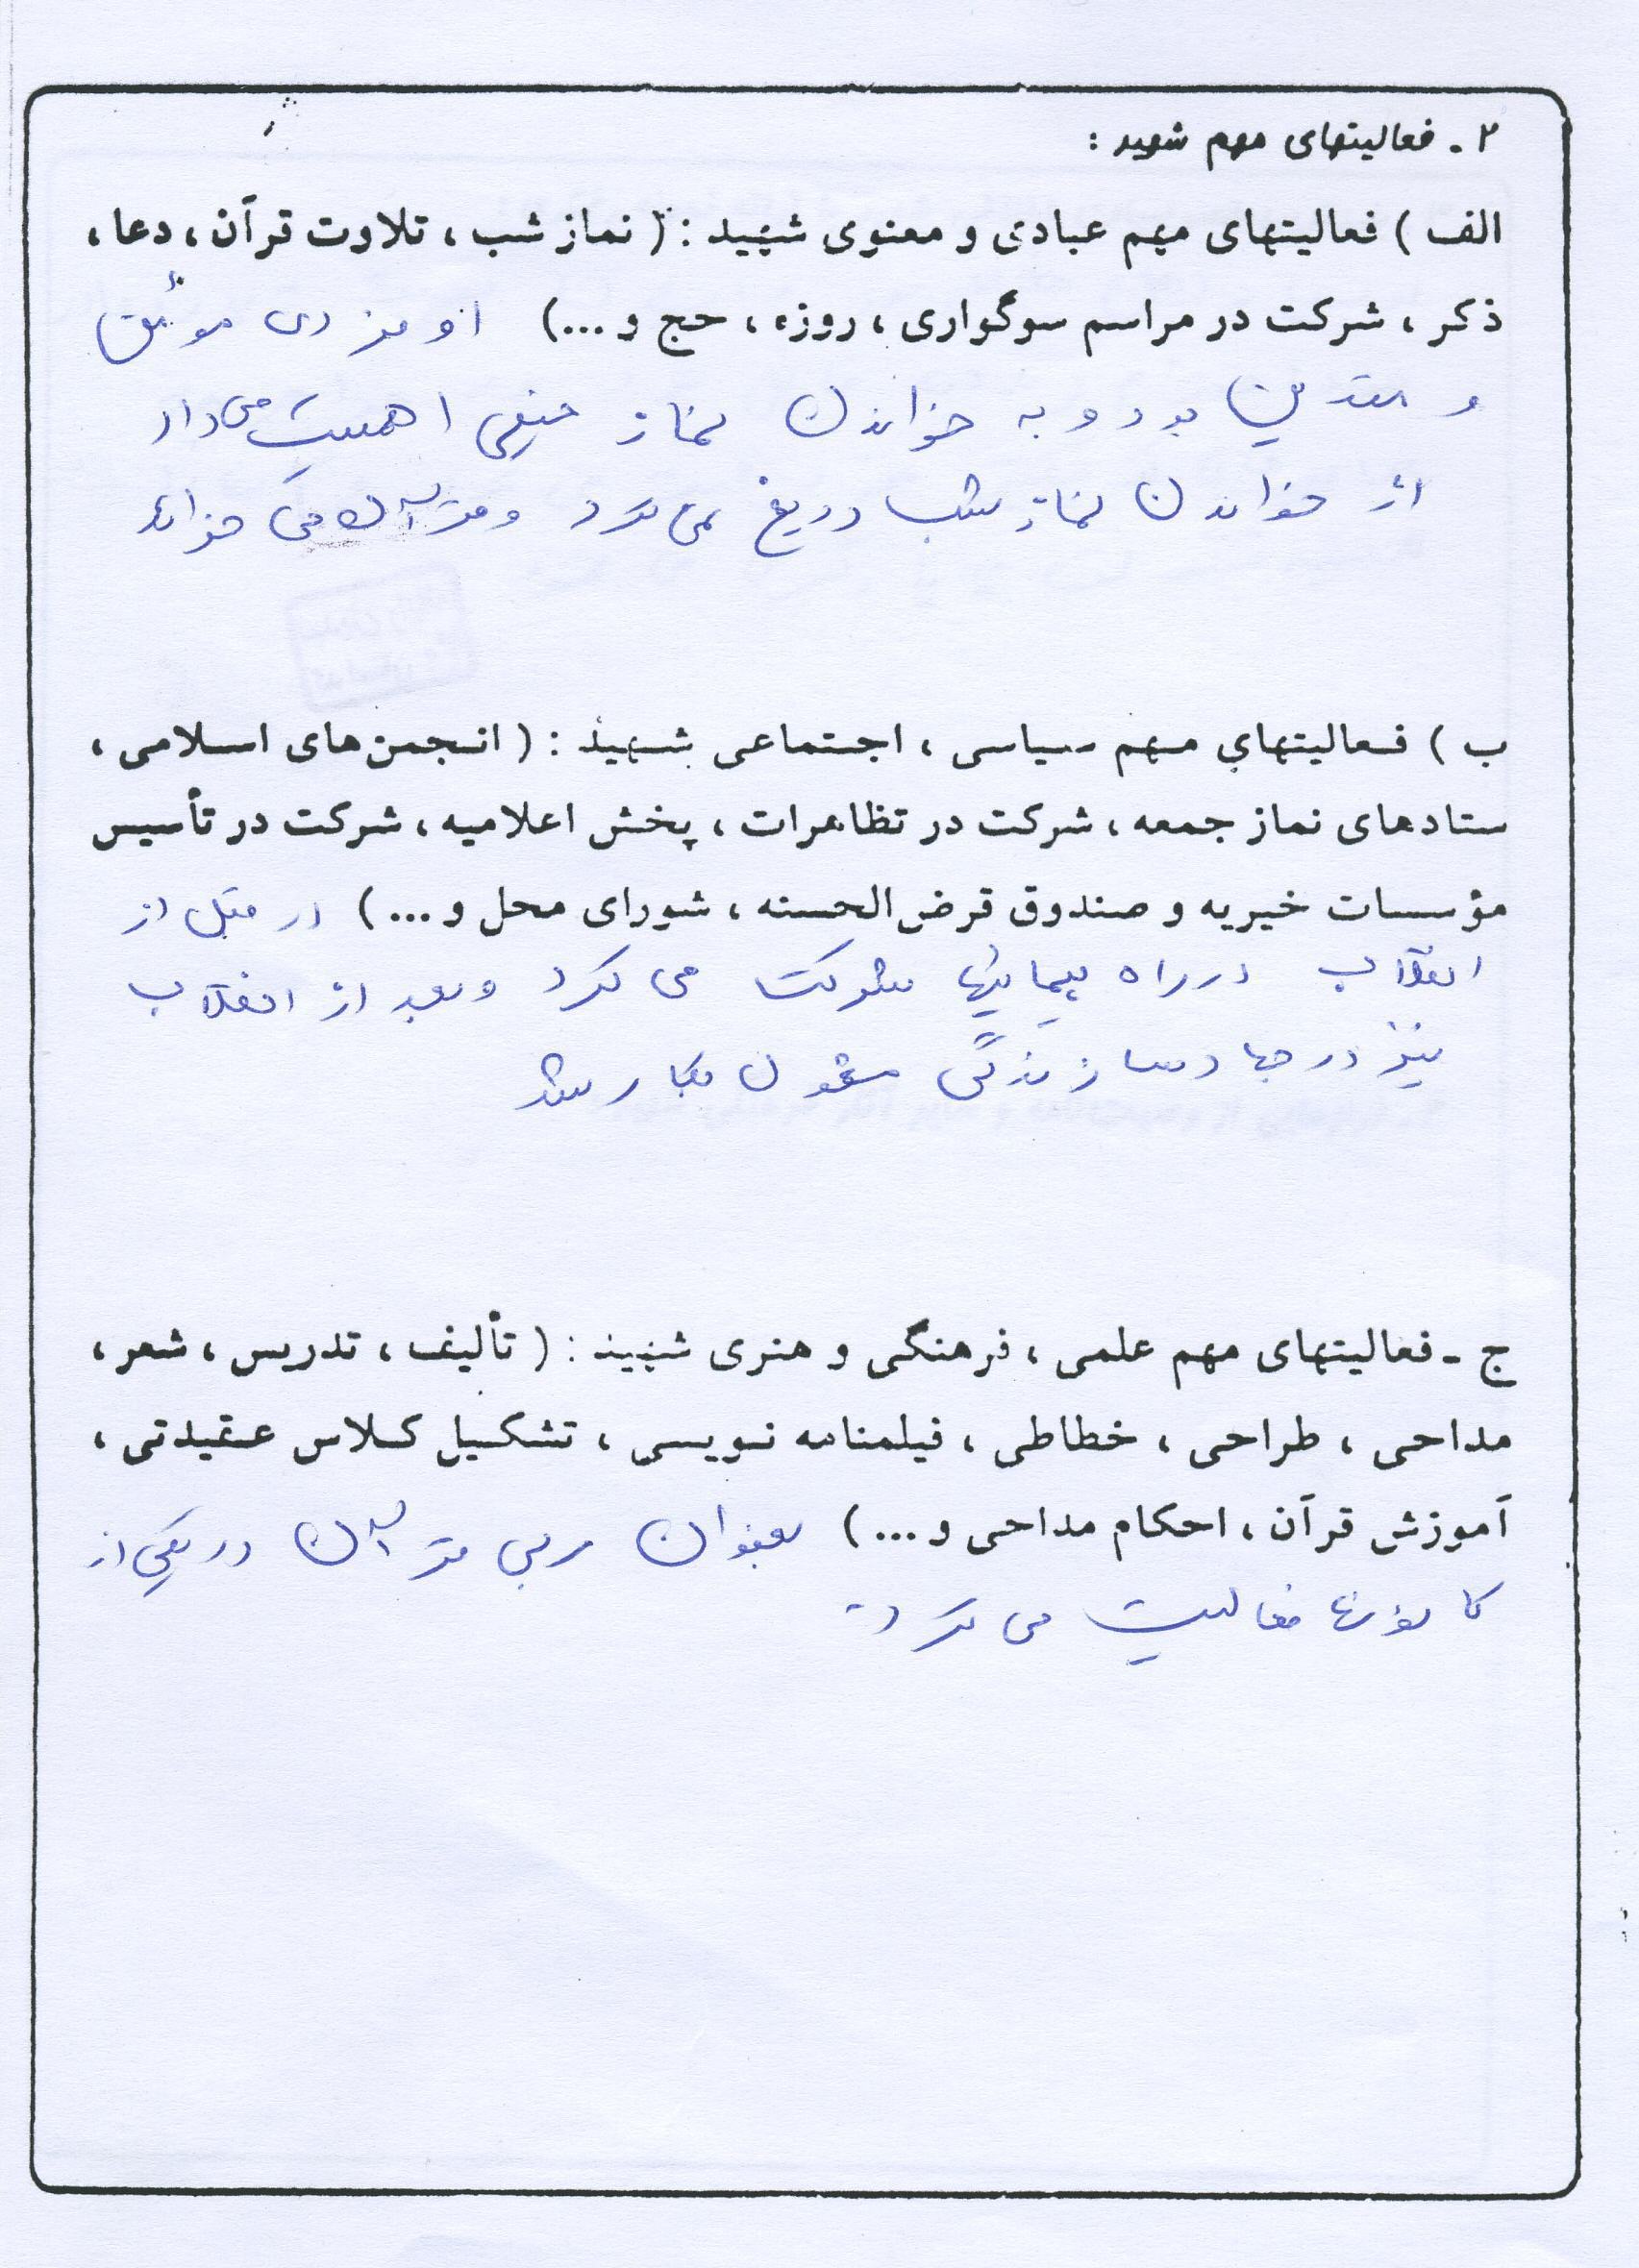 ۲ - فعالیتهای مهم شهید :
الف ) فعالیتهای مهم عبادی و معنوی شهید : ( نماز شب ، تلاوت قرآن ، دعا ،
ذکر ، شرکت در مراسم سوگواری ، روزه ، حج و ...) او فردی مؤمن
و متدین بود و به خواندن نماز خیلی اهمیت می داد
از خواندن نماز شب دریغ نمی کرد و قرآن می خواند
ب ) فعالیتهای مهم سیاسی ، اجتماعی شهید : ( انجمن‌های اسلامی ،
ستادهای نماز جمعه ، شرکت در تظاهرات ، پخش اعلامیه ، شرکت در تأسیس
مؤسسات خیریه و صندوق قرض‌الحسنه ، شورای محل و ...) در قبل از
انقلاب در راه پیمائیها شرکت می کرد و بعد از انقلاب
نیز در جهاد سازندگی مشغول بکار شد
ج - فعالیتهای مهم علمی ، فرهنگی و هنری شهید : ( تألیف ، تدریس ، شعر ،
مداحی ، طراحی ، خطاطی ، فیلمنامه نویسی ، تشکیل کلاس عقیدتی ،
آموزش قرآن ، احکام مداحی و ...) بعنوان مربی قرآن در یکی از
کانونها فعالیت می کرد.